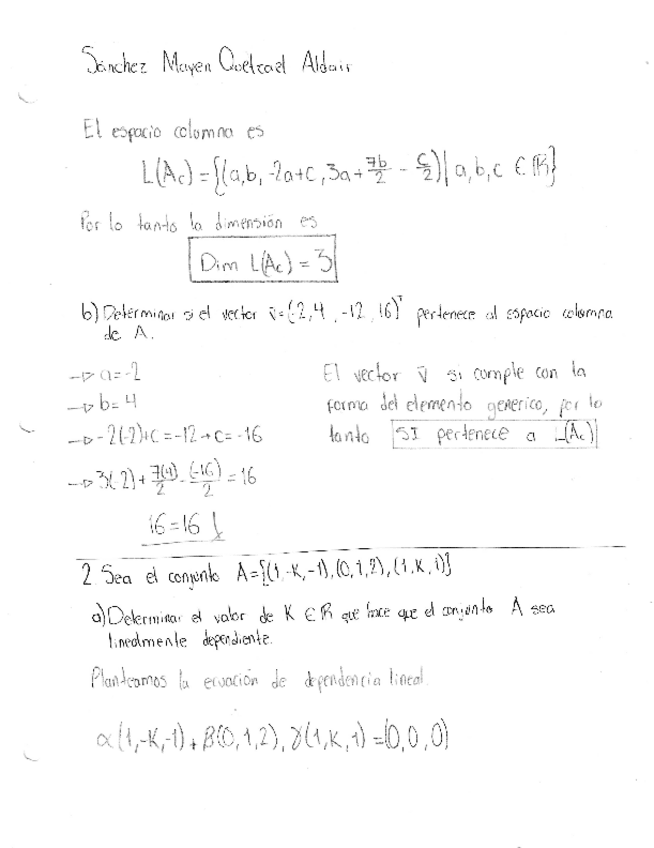 Sánchez Mayen Quetzael Aldair
El espacio columna es
L(Ac) = {(a,b, -2a+c, 3a + 7b/2 - c/2) | a,b,c ∈ K}
Por lo tanto la dimensión es
Dim L(Ac) = 3
b) Determinar si el vector v̄=(-2,4,-12,16)ᵀ pertenece al espacio columna
de A.
→ a=-2
→ b=4
→ -2(-2)+c=-12 → c=-16
→ 3(-2) + 7(4)/2 - (-16)/2 = 16
16=16
El vector v̄ si cumple con la
forma del elemento generico, por lo
tanto SI pertenece a L(Ac)
2 Sea el conjunto A={(1,-K,-1),(0,1,2),(1,K,1)}
a) Determinar el valor de K ∈ R que hace que el conjunto A sea
linealmente dependiente.
Planteamos la ecuación de dependencia lineal
α(1,-K,-1) + β(0,1,2), γ(1,K,1) = (0,0,0)